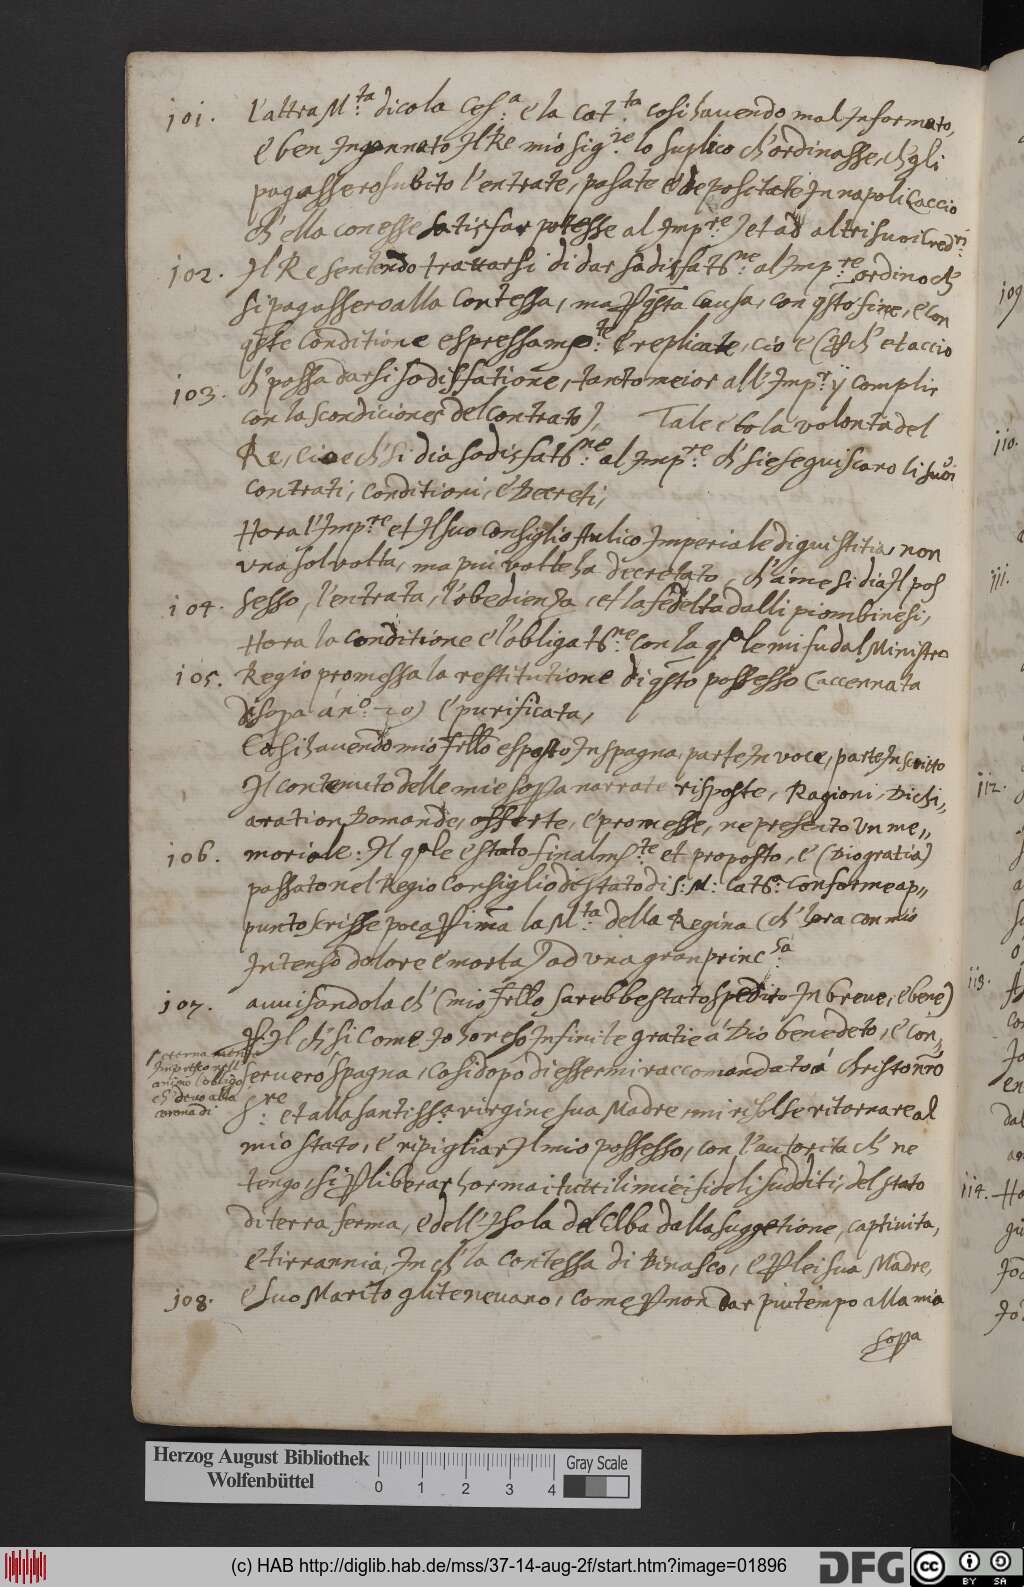 101. l'altra M.ta dico la Ces.a e la Cat.ta cosi havendo mal Informato,
e ben Ingannato Il Re mio sig.re lo suplico ch'ordinasse, ch'gli
pagassero subito l'entrate, pasate e depositate In napoli (accio
ch'ella con esse satisfar potesse al Imp.re) et ad altri suoi Cred.ri
102. Il Re sentendo trattarsi di dar sadisfat.ne al Imp.re ordino ch'
si pagassero alla Contessa, ma p q.sta causa, con q.sto fine, e con
q.ste Conditione espressam.te e replicate, cio e (p ch' et accio
103. ch' possa darsi sodisfatione, tanto meior all' Imp.r ÿ complir
con las condiciones del contrato). Tale e to la volonta del
Re, cioe ch' si dia sodisfat.ne al Imp.re ch' si eseguiscaro li suoi
contrati, conditioni, e Decreti,
Hora l'Imp.re et Il suo Consiglio Aulico Imperiale di giustitia, non
una sol volta, ma piu volte ha decretato, ch' á me si dia Il pos
104. sesso, l'entrata, l'obedienza, et la fedelta dalli piombinesi,
Hora la conditione e l'obligat.ne con la q.le mi fu dal Ministro
105. Regio promessa la restitutione di q.sto possesso (accennata
di sopa á n.o 20) e purificata,
Cosi havendo mio frllo esposto In spagna, parte In voce, parte In scritto
Il contenuto delle mie sopa narrate risposte, Ragioni, Dichi,,
aration Domande, offerte, e promesse, ne presento un me,,
106. moriale: Il q.le e stato finalm.te et proposto, e (Dio gratia)
passato nel Regio Consiglio di stato di S: M: Cat.ca conforme ap,,
punto scrisse poca pima la M.ta della Regina (ch' hora con mio
Intenso dolore e morta) ad una gran princ.sa
107. avvisandola ch' (mio frllo sarebbe stato spedito In breve, e bene)
p Il ch' si come Io ho reso Infinite gratie a Dio benedeto, e con
eterna
Impresso nell'
animo l'obligo
ch' devo alla
corona di
servero spagna, cosi dopo di essermi raccomandato á Christo nro
S.re et alla santiss.a virgine sua Madre, mi risolse ritornare al
mio stato, e ripigliar Il mio possesso, con l'autorita ch' ne
tengo, si p liberar hormai tutti li miei fideli sudditi, del stato
di terra ferma, e dell' Isola del Elba dalla suggetione, captivita,
e tirrannia, In ch' la contessa di Binasco, e p lei sua Madre,
108. e suo Marito gli tenevano, come p non dar piu tempo alla mia
sopa
109
110.
111.
112.
113.
114.
Herzog August Bibliothek
Wolfenbüttel
0 1 2 3 4
Gray Scale
(c) HAB http://diglib.hab.de/mss/37-14-aug-2f/start.htm?image=01896
DFG
cc BY SA